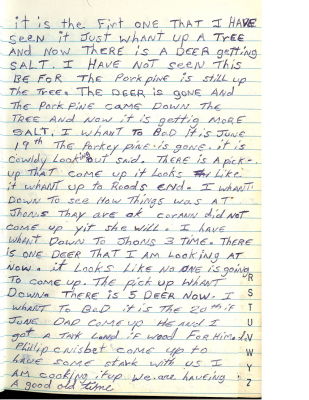 it is the Firt ONE THAT I HAVE
seen it Just WHANT up A TREE
AND NOW THERE is A DEER getting
SALT. I HAVE NOT seen THis
BE FOR THE Porkpine is still up
The Tree. The DEER is gone AND
THE PORK Pine CAME DOWN THE
TREE AND NOW iT is gettig MORE
SALT. I WHANT To BeD iT is JUNE
19th THE Porkey pine is gone. it is
cowldy Looking out said. THERE is A pick-
up THAT come up it Looks Like
it WHANT up to Roads end. I WHANT
DOWN To see How THings WAS AT
Jhons THAY ARE ok cormin did NOT
come up yit she will. I HAVE
WHANT DOWN To Jhons 3 TIME. THERE
is ONE DEER THAT I AM Looking AT
NOW. it Looks Like No one is going
To come up. The pick up WHANT
DOWN. THERE is 5 DEER NOW. I
WHANT To BeD it is THE 20th if
JUNE DAD come up HE AND I
got A Tnk Lond if wood For Him
Phillip cnisbet come up to
HAVE some stark with us I
AM cooking it up we are haveing
A good old time
R
S
T
U
V
W
Y
Z